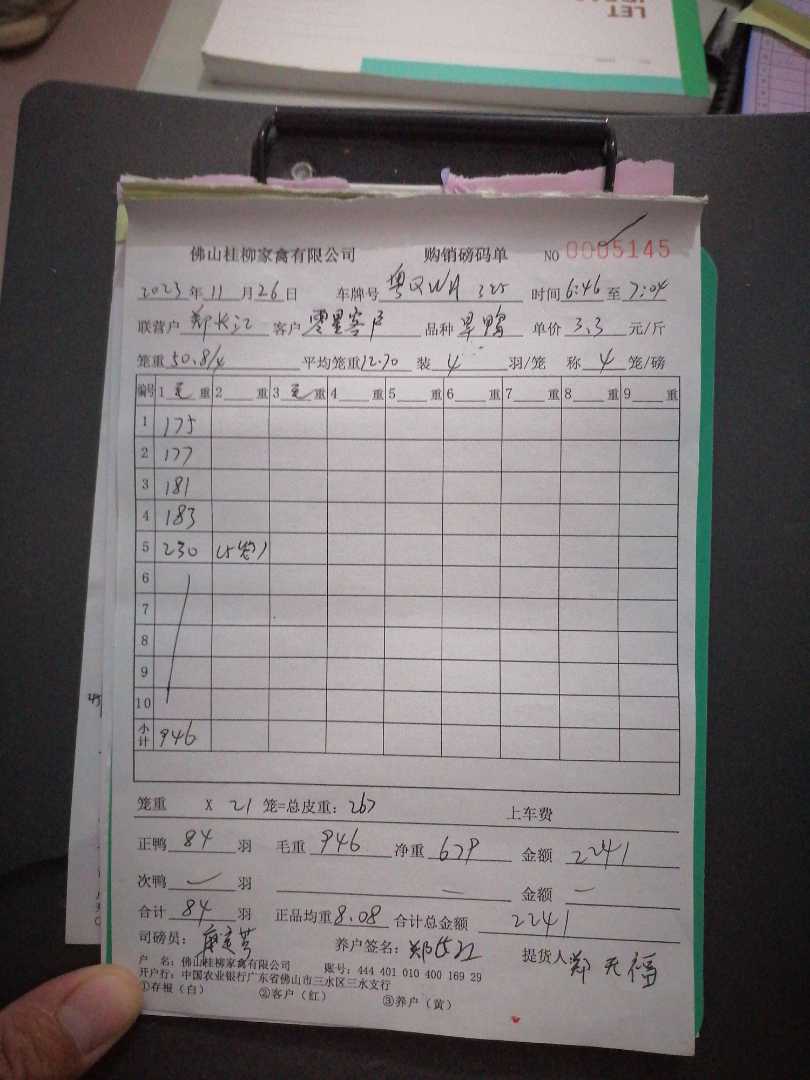 LET
佛山桂柳家禽有限公司 购销磅码单 NO 0005145
2023年11月26日 车牌号 粤 时间6:46至7:04
联营户 郑长江 客户 零星客户 品种 旱鸭 单价 3.3 元/斤
笼重 50.8/4 平均笼重12.70 装 4 羽/笼 称 4 笼/磅
编号 1 毛 重 2 重 3 毛 重 4 重 5 重 6 重 7 重 8 重 9 重
1 175
2 177
3 181
4 183
5 230 (5笼)
6
7
8
9
10
小计 946
笼重 X 21 笼=总皮重: 267 上车费
正鸭 84 羽 毛重 946 净重 679 金额 2241
次鸭 — 羽 — 金额 —
合计 84 羽 正品均重 8.08 合计总金额 2241
司磅员: 养户签名: 郑长江 提货人 郑天福
户 名: 佛山桂柳家禽有限公司 账号: 444 401 010 400 169 29
开户行: 中国农业银行广东省佛山市三水区三水支行
①存根(白) ②客户(红) ③养户(黄)